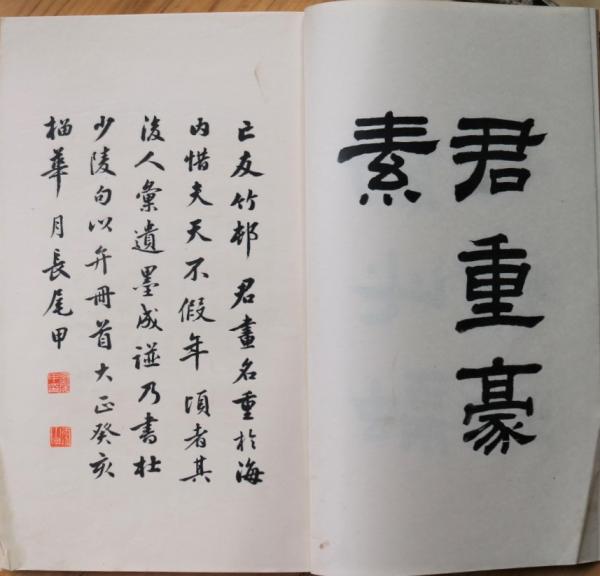 君重豪
素
亡友竹邨 君畫名重於海
内惜夫天不假年 頃者其
後人彙遺墨成譜乃書杜
少陵句以弁冊首大正癸亥
榴華月長尾甲